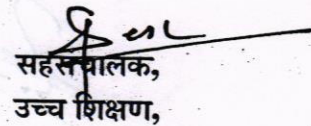 सहसंचालक,
उच्च शिक्षण,